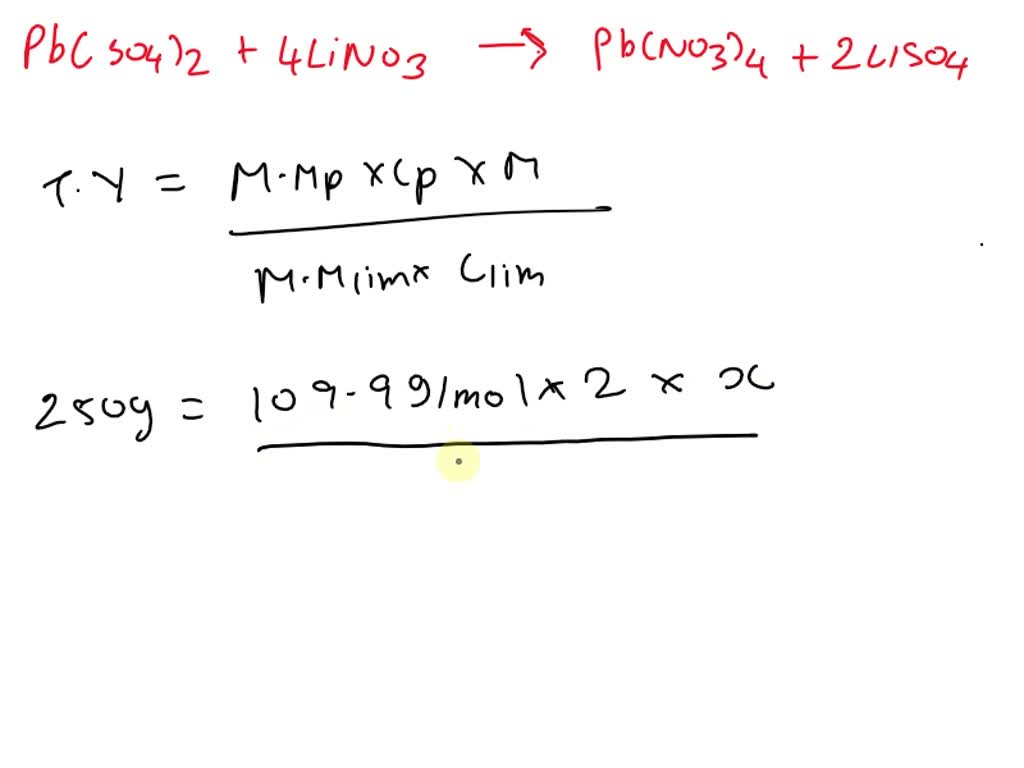 Pb(SO4)2 + 4LiNO3 → Pb(NO3)4 + 2LiSO4
T.Y = M.Mp x Cp x M
M.Mlim x Clim
250g = 109.9 g/mol x 2 x x